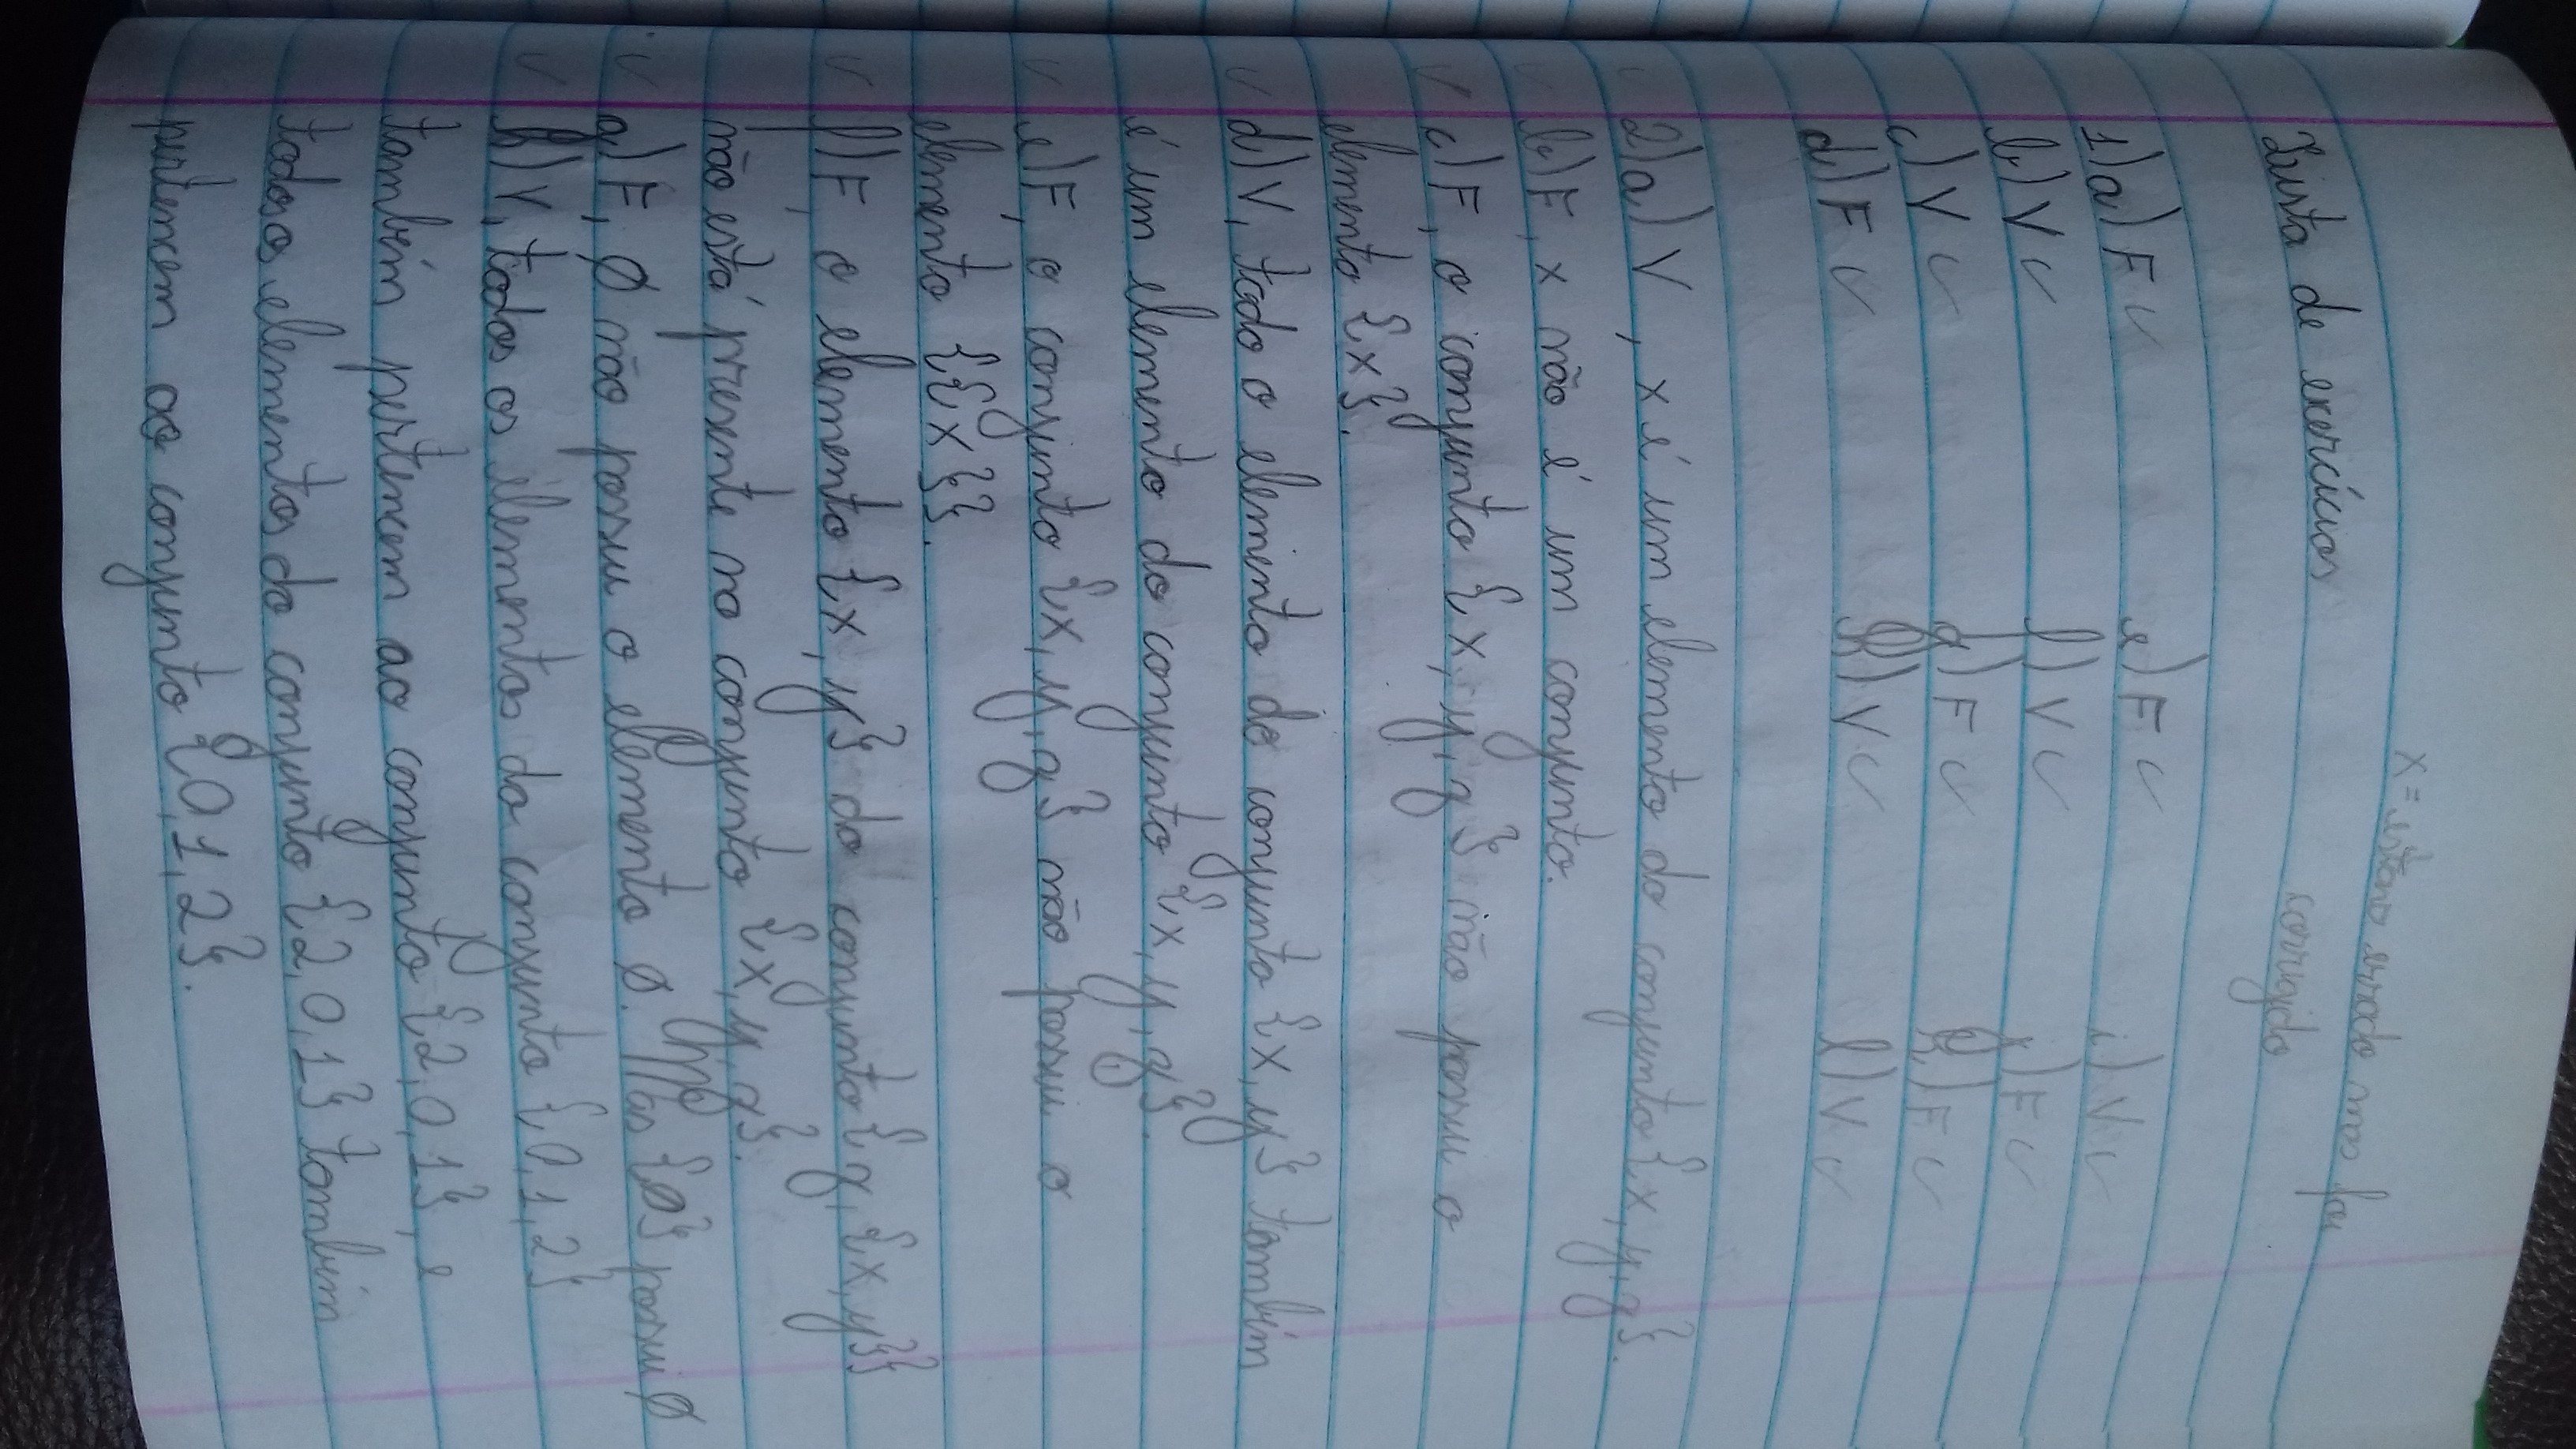 x = estava errado mas foi
corrigido
Lista de exercícios
1)a) F ✓ e) F ✓ i) V ✓
b) V ✓ f) V ✓ j) F ✓
c) V ✓ g) F ✓ k) F ✓
d) F ✓ h) V ✓ l) V ✓
✓ 2)a) V, x é um elemento do conjunto {x, y, z}.
✓ b) F, x não é um conjunto.
✓ c) F, o conjunto {x, y, z} não possui o
elemento {x}.
✓ d) V, todo o elemento do conjunto {x, y} também
é um elemento do conjunto {x, y, z}.
✓ e) F, o conjunto {x, y, z} não possui o
elemento {{x}}.
✓ f) F, o elemento {x, y} do conjunto {z, {x, y}}
não está presente no conjunto {x, y, z}.
✓ g) F, ∅ não possui o elemento ∅. Mas {∅} possui ∅
✓ h) V, todos os elementos do conjunto {0, 1, 2}
também pertencem ao conjunto {2, 0, 1}, e
todos os elementos do conjunto {2, 0, 1} também
pertencem ao conjunto {0, 1, 2}.